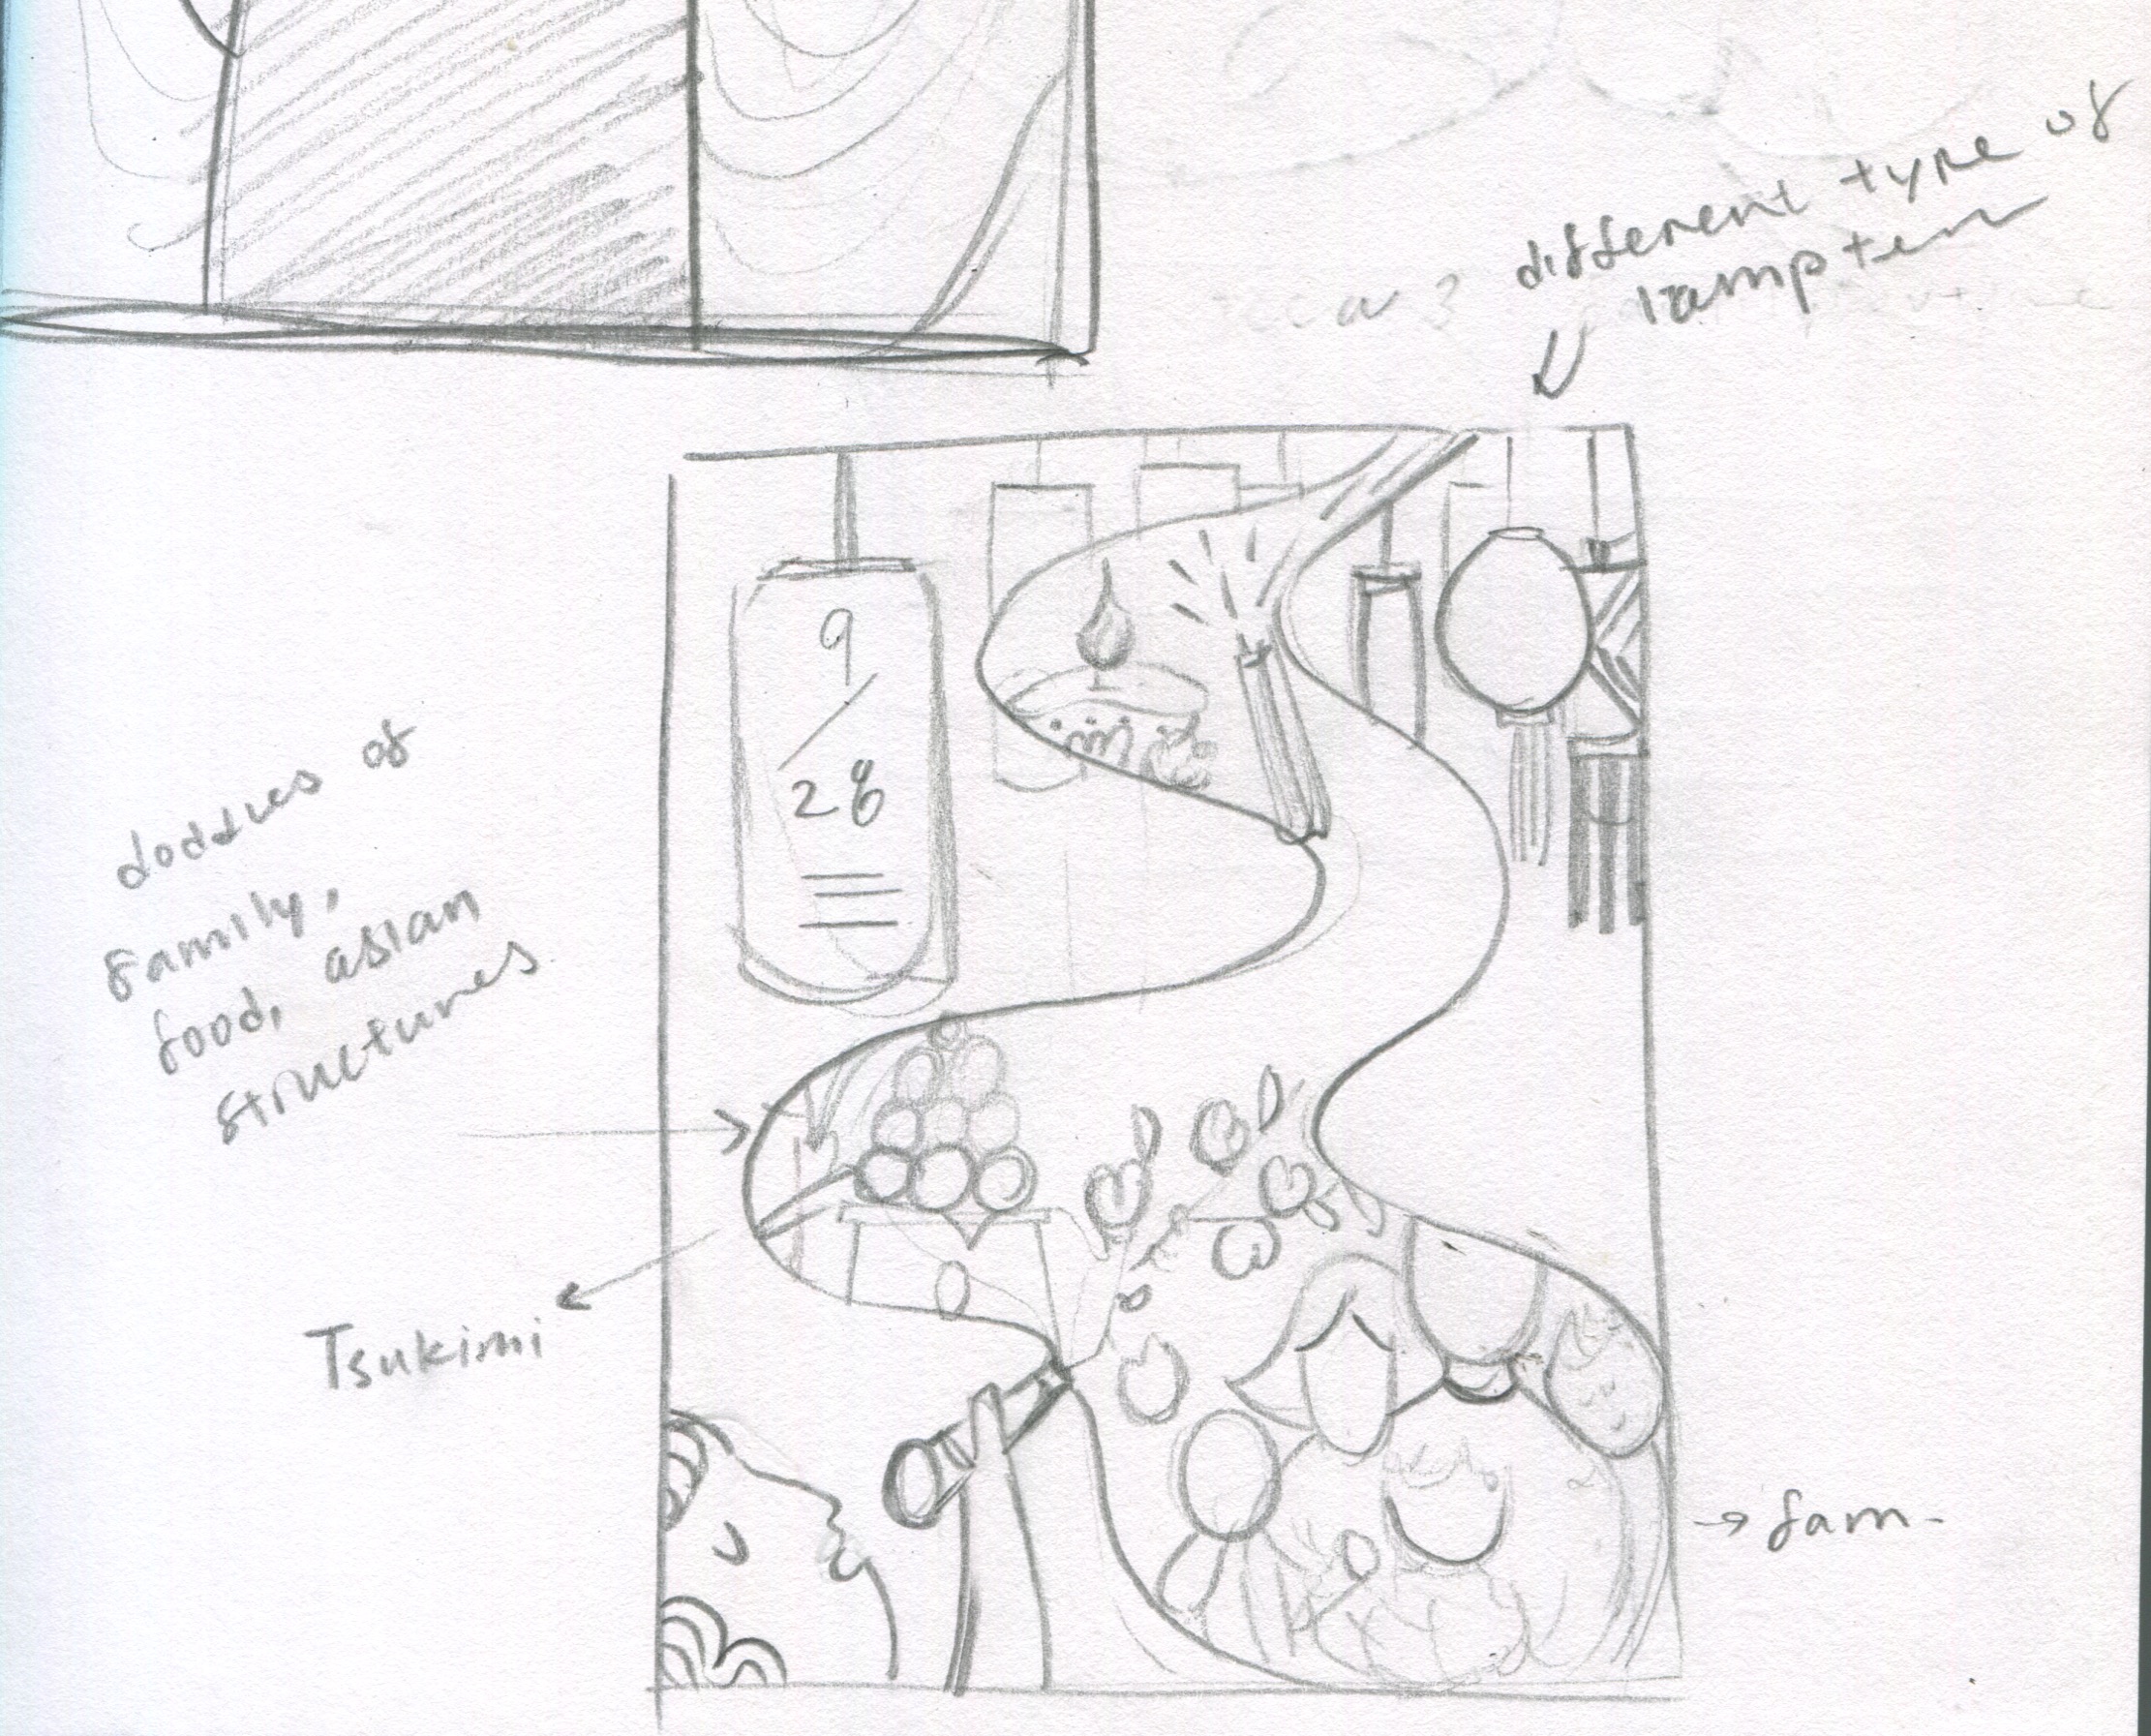 different type of
lamptern
9
/
28
doddles of
family,
food, asian
structures
Tsukimi
→ fam-